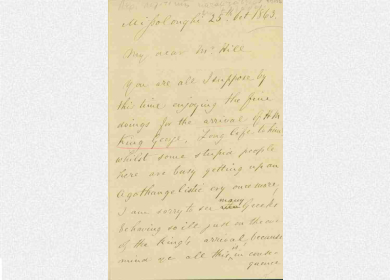 Missolonghi 25th Oct 1863.
My dear Mr Hill
you are all I suppose by
this time enjoying the fine
doings for the arrival of H.M
King George. Long life to him
whilst some stupid people
here are busy getting up an
Agathangelistic
I am sorry to see many Greeks
behaving so ill just in time
of the King's arrival, because
mind ye all this is in conse-
quence